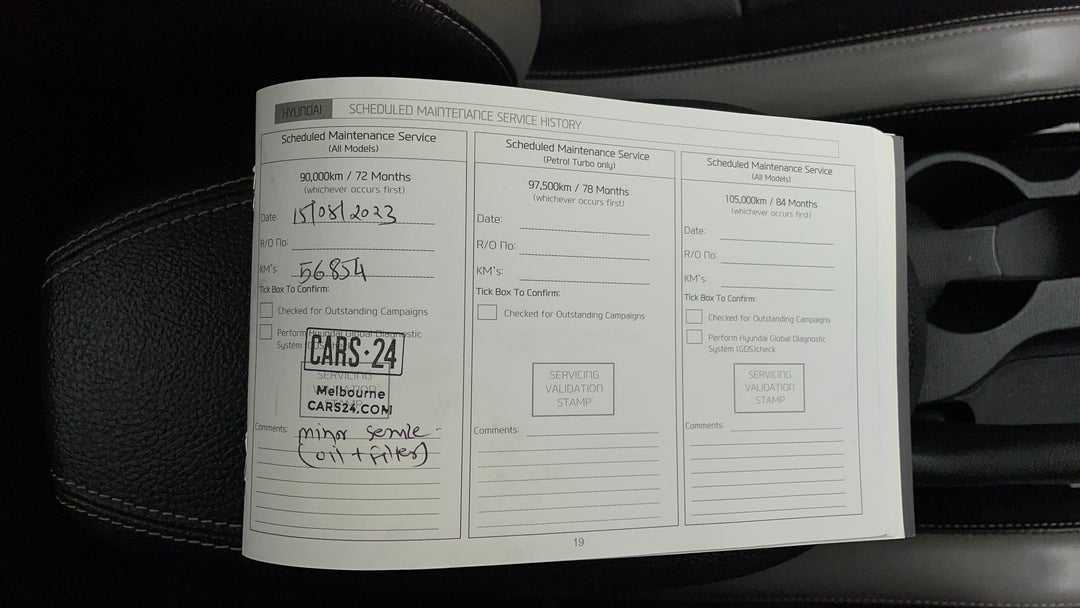 HYUNDAI SCHEDULED MAINTENANCE SERVICE HISTORY
Scheduled Maintenance Service
(All Models)
90,000km / 72 Months
(whichever occurs first)
Date: 15/08/2023
R/O No:
KM's: 56854
Tick Box To Confirm:
Checked for Outstanding Campaigns
Perform Hyundai Global Diagnostic
System (GDS)check
CARS·24
SERVICING
VALIDATION
STAMP
Melbourne
CARS24.COM
Comments: minor service -
(oil + Filter)
Scheduled Maintenance Service
(Petrol Turbo only)
97,500km / 78 Months
(whichever occurs first)
Date:
R/O No:
KM's:
Tick Box To Confirm:
Checked for Outstanding Campaigns
SERVICING
VALIDATION
STAMP
Comments:
Scheduled Maintenance Service
(All Models)
105,000km / 84 Months
(whichever occurs first)
Date:
R/O No:
KM's:
Tick Box To Confirm:
Checked for Outstanding Campaigns
Perform Hyundai Global Diagnostic
System (GDS)check
SERVICING
VALIDATION
STAMP
Comments:
19